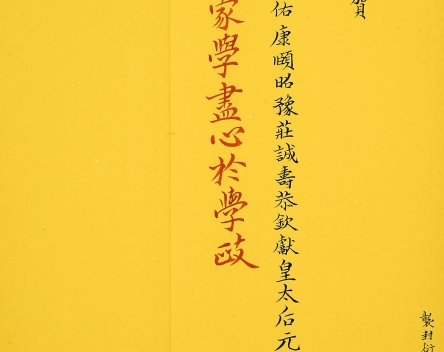 襲封衍
賀
佑康頤昭豫莊誠壽恭欽獻皇太后元
家學盡心於學政